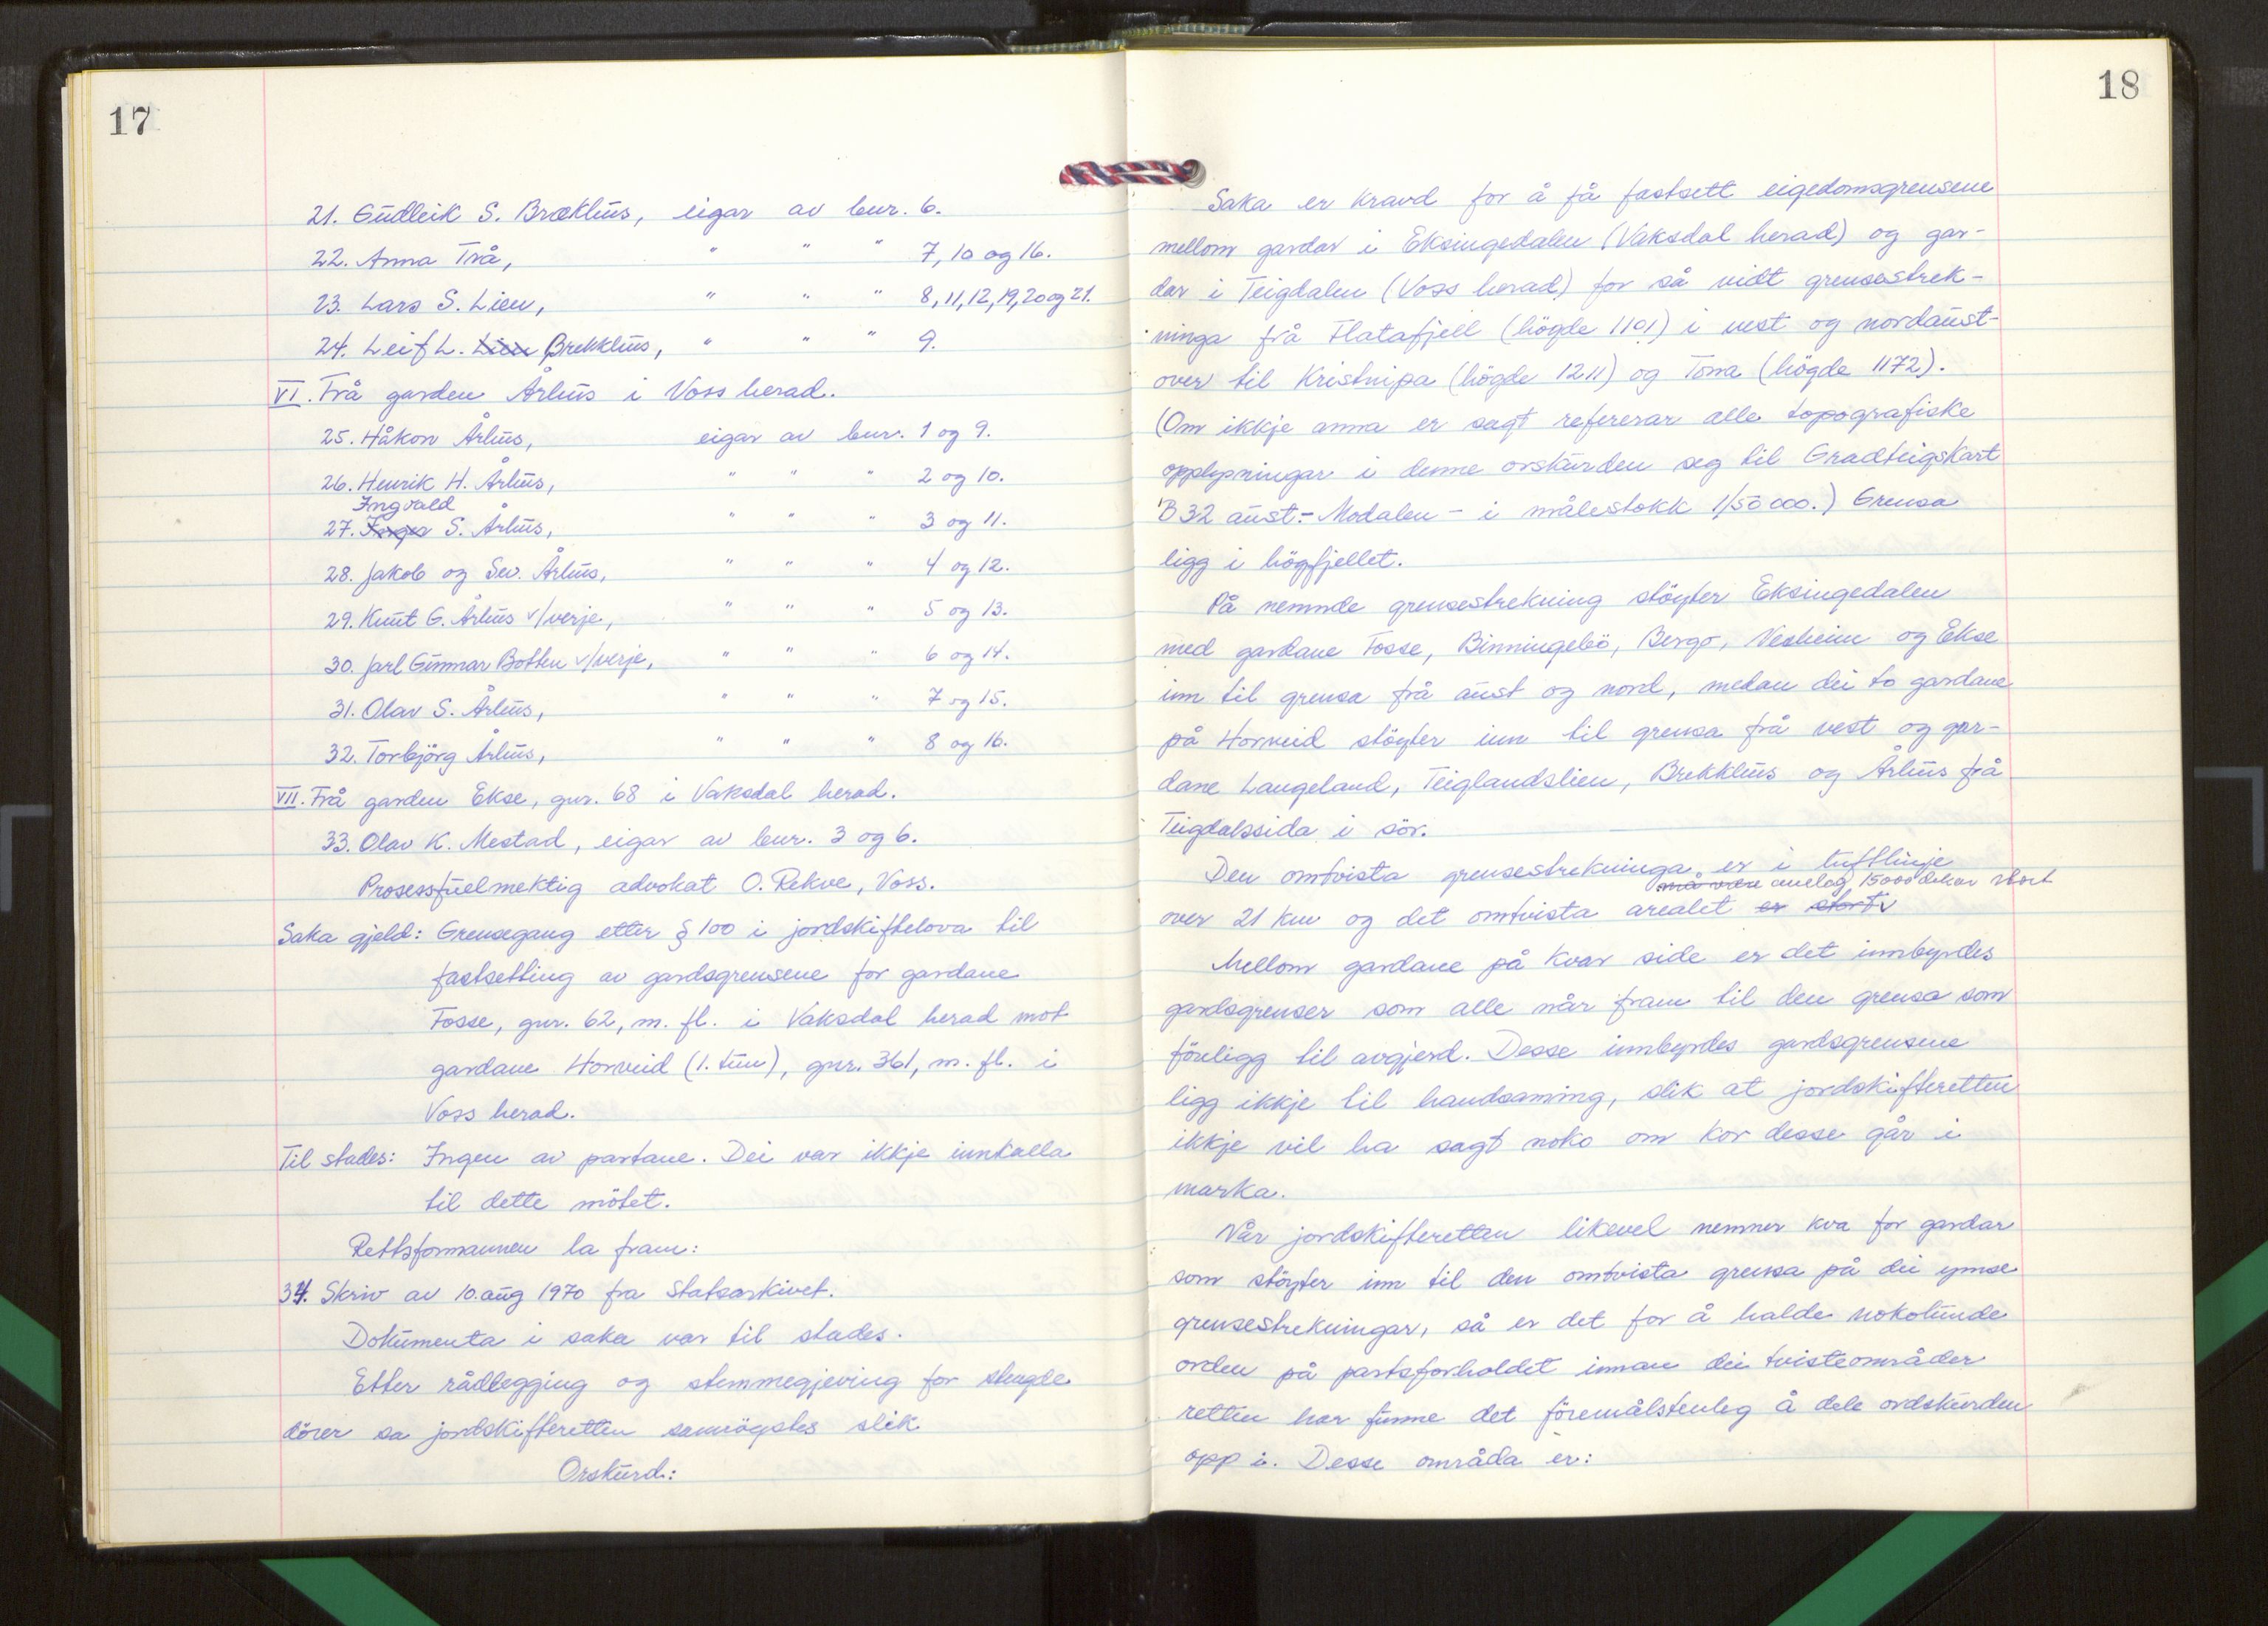 17
21. Gudleik S. Brekkhus, eigar av bnr. 6.
22. Anna Trå, " " " 7, 10 og 16.
23. Lars S. Lien, " " " 8, 11, 12, 19, 20 og 21.
24. Leif L. Lien Brekkhus, " " " 9.
VI. Frå garden Århus i Voss herad.
25. Håkon Århus, eigar av bnr. 1 og 9.
26. Henrik H. Århus, " " " 2 og 10.
Ingvald
27. Inger S. Århus, " " " 3 og 11.
28. Jakob og Sev. Århus, " " " 4 og 12.
29. Knut G. Århus v/verje, " " " 5 og 13.
30. Jarl Gunnar Botten v/verje, " " " 6 og 14.
31. Olav S. Århus, " " " 7 og 15.
32. Torbjörg Århus, " " " 8 og 16.
VII. Frå garden Ekse, gnr. 68 i Vaksdal herad.
33. Olav K. Mestad, eigar av bnr. 3 og 6.
Prosessfuelmektig advokat O. Rekve, Voss.
Saka gjeld: Grensegang etter § 100 i jordskiftelova til
fastsetting av gardsgrensene for gardane
Fosse, gnr. 62, m. fl. i Vaksdal herad mot
gardane Horveid (1. tun), gnr. 361, m. fl. i
Voss herad.
Til stades: Ingen av partane. Dei var ikkje innkalla
til dette mötet.
Rettsformannen la fram:
34. Skriv av 10. aug 1970 fra Statsarkivet.
Dokumenta i saka var til stades.
Etter rådlegging og stemmegjeving for stengde
dörer sa jordskifteretten samrögstes slik
Orskurd:
18
Saka er kravd for å få fastsett eigedomsgrensene
mellom gardar i Eksingedalen (Vaksdal herad) og gar-
dar i Teigdalen (Voss herad) for så vidt grensestrek-
ninga frå Flatafjell (högde 1101) i vest og nordaust-
over til Kristnipa (högde 1211) og Tona (högde 1172).
(Om ikkje anna er sagt refererar alle topografiske
opplysningar i denne orskurden seg til Gradteigskart
B 32 aust. - Modalen - i målestokk 1/50 000.) Grensa
ligg i högfjellet.
På nemnde grensestrekning stöyter Eksingedalen
med gardane Fosse, Binningebö, Bergo, Vesheim og Ekse
inn til grensa frå aust og nord, medan dei to gardane
på Horveid stöyter inn til grensa frå vest og gar-
dane Langeland, Teiglandslien, Brekkhus og Århus frå
Teigdalssida i sör.
Den omtvista grensestrekninga er i luftlinje
må være omlag 15000 dekar stort
over 21 km og det omtvista arealet er stort
Mellom gardane på kvar side er det innbyrdes
gardsgrenser som alle når fram til den grensa som
föreligg til avgjerd. Desse innbyrdes gardsgrensene
ligg ikkje til handsaming, slik at jordskifteretten
ikkje vil ha sagt noko om kor desse går i
marka.
Når jordskifteretten likevel nemner kva for gardar
som stöyter inn til den omtvista grensa på dei ymse
grensestrekningar, så er det for å halde nokolunde
orden på partsforholdet innan dei tvisteområder
retten har funne det föremålstenleg å dele ordskurden
opp i. Desse områda er: